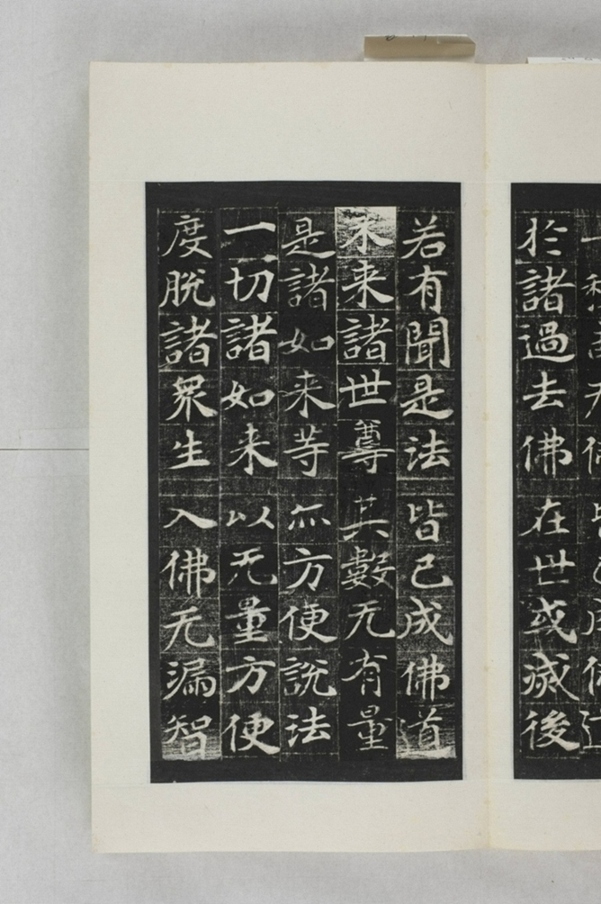 於諸過去佛 在世或滅後
若有聞是法 皆已成佛道
未来諸世尊 其數无有量
是諸如来等 亦方便說法
一切諸如来 以无量方便
度脫諸眾生 入佛无漏智